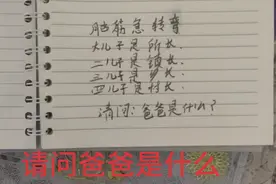 脑筋急转弯
大儿子是所长.
二儿子是镇长.
三儿子是乡长.
四儿子是村长.
请问:爸爸是什么?
请问爸爸是什么